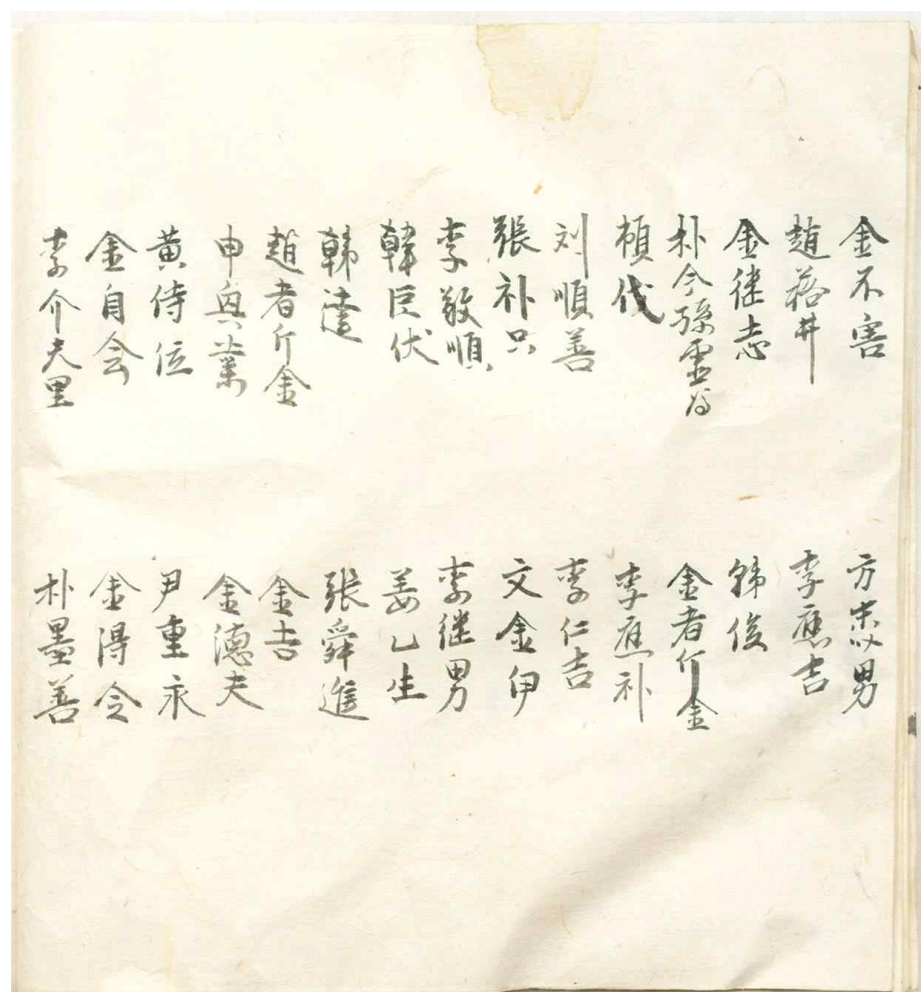 金不害
趙
金继志
朴今孫
順伐
刘順善
張补只
李敬順
韓巨伏
韩達
趙者斤金
申興業
黄侍位
金自会
李介夫里
方忠男
李應吉
韩俊
金者斤金
李應补
李仁吉
文金伊
李继男
姜乙生
張舜進
金吉
金德夫
尹重永
金得令
朴墨善